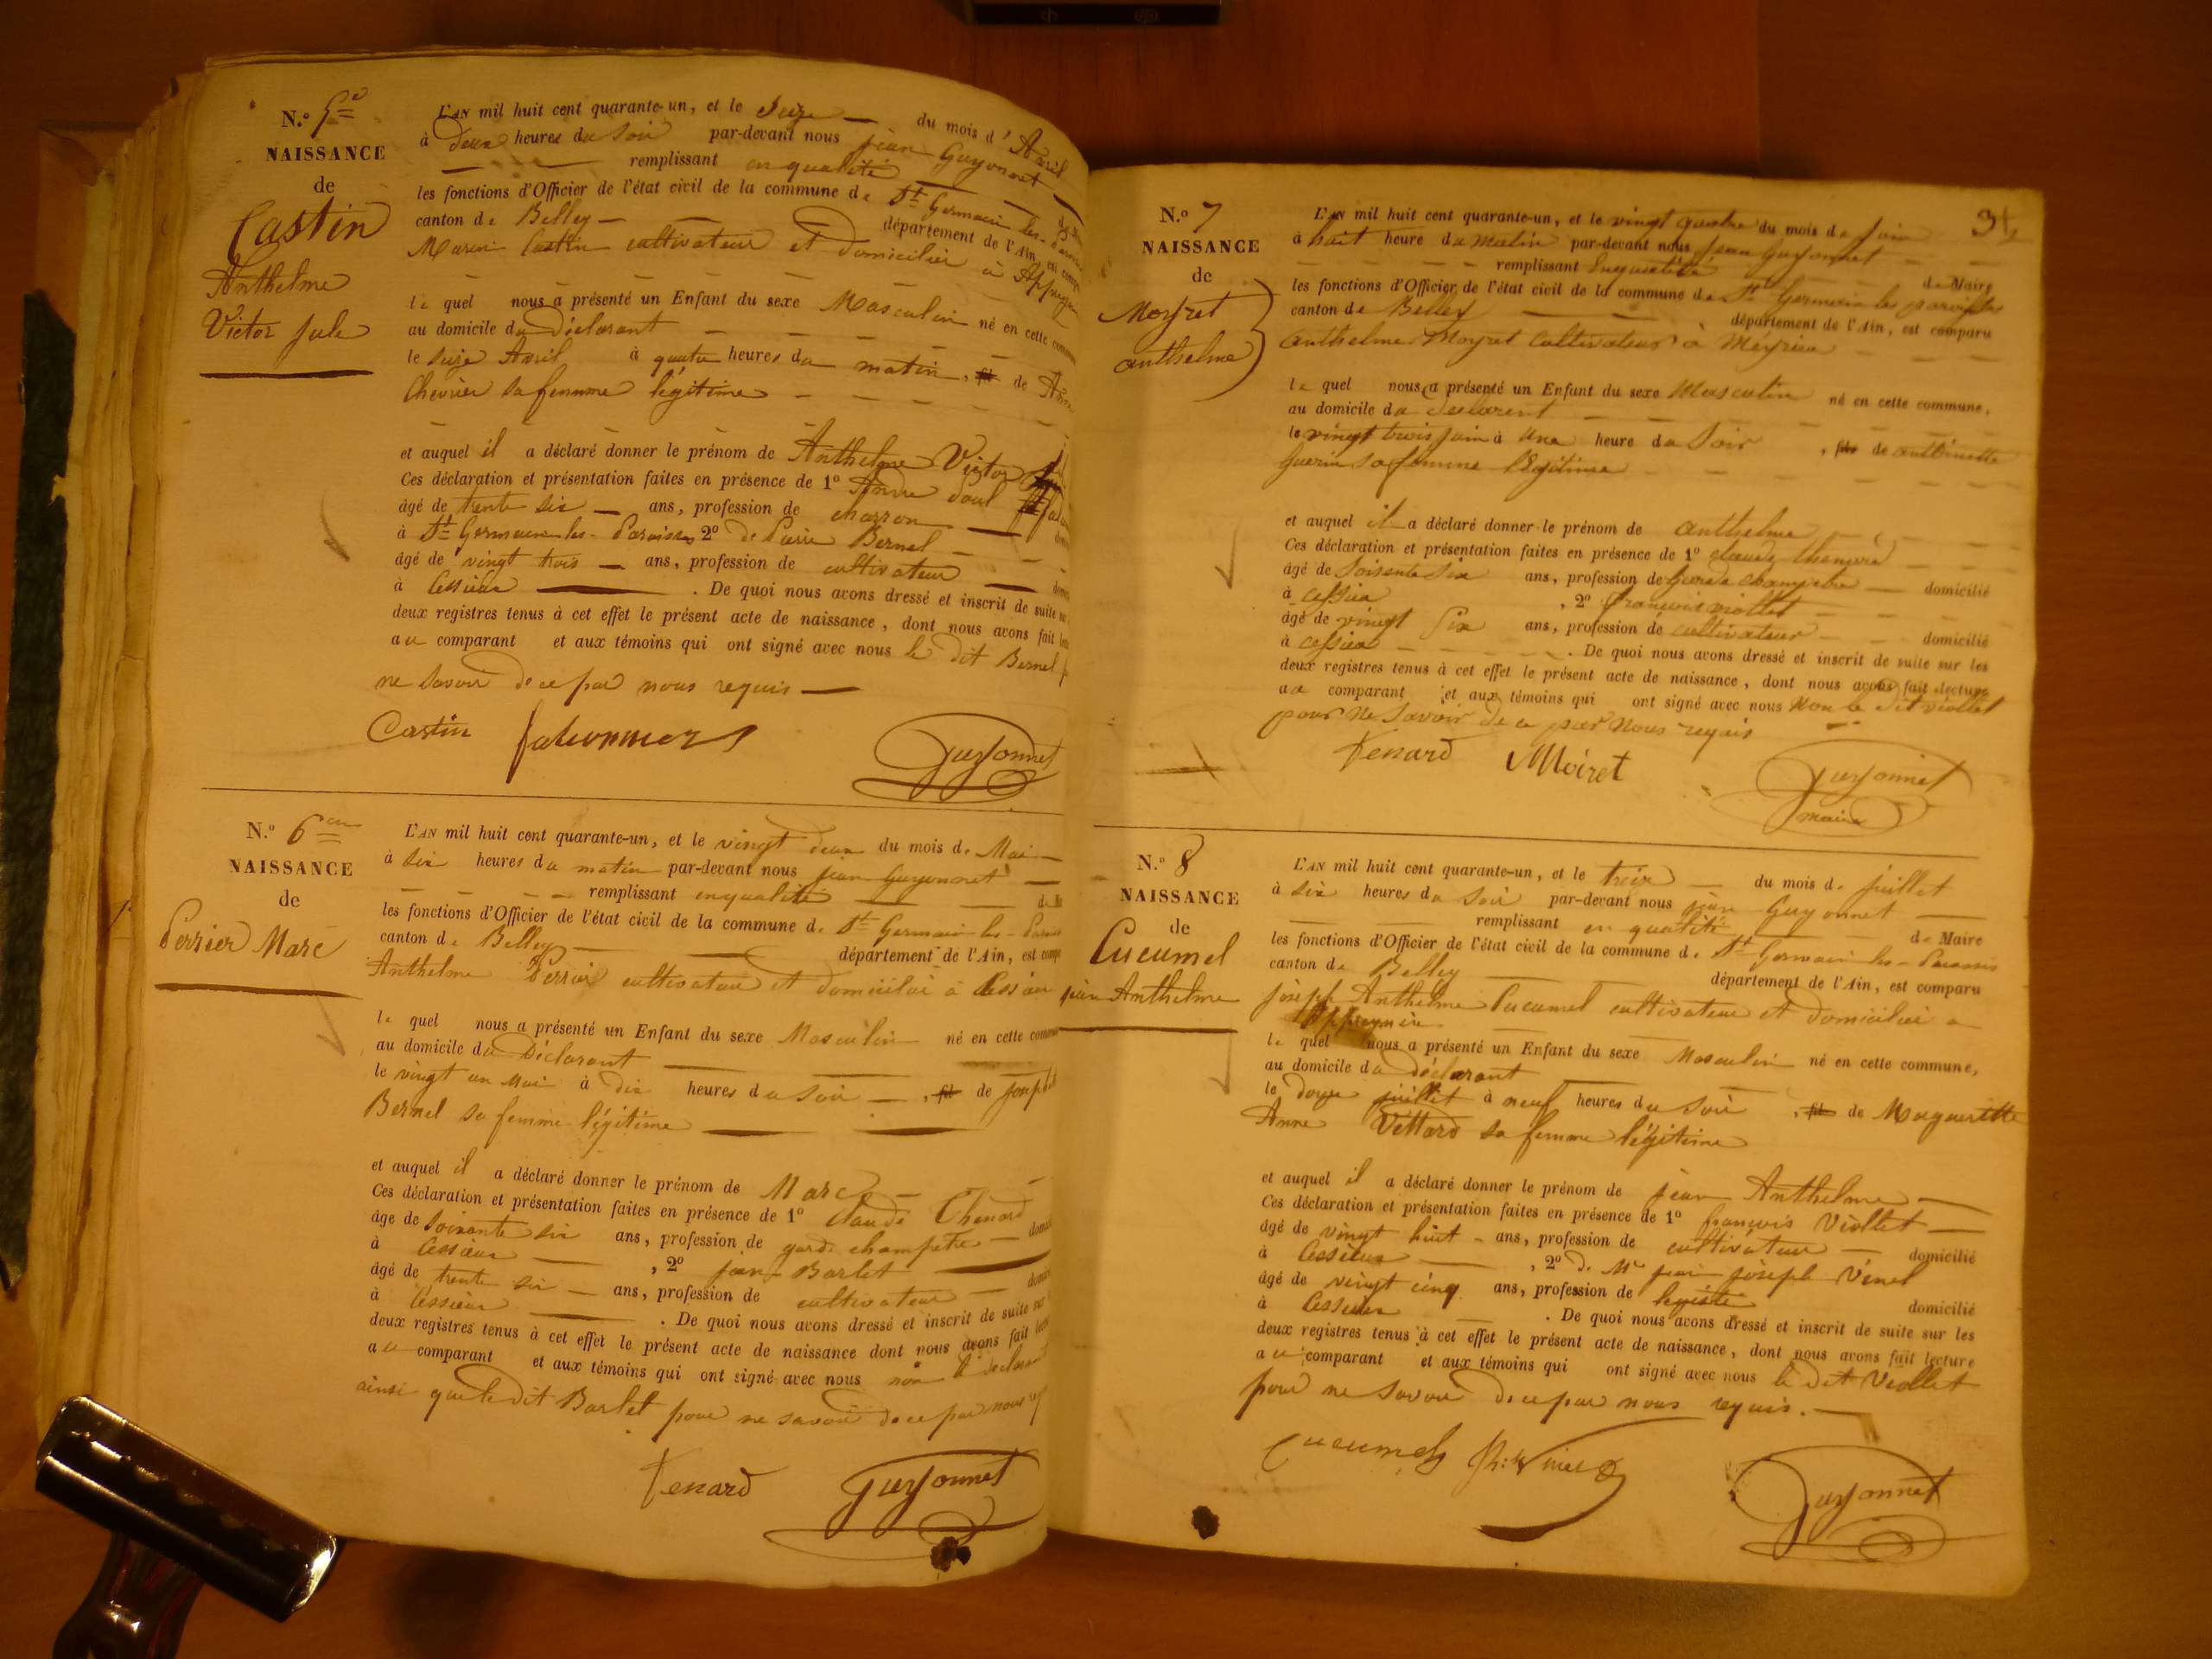 N.o 5e
NAISSANCE
de
Castin
Anthelme
Victor Jule
L'AN mil huit cent quarante-un, et le Seize du mois d'Avril
à Deux heures du Soir par-devant nous jean Guyonnet
remplissant en qualité
les fonctions d'Officier de l'état civil de la commune de St Germain les-
canton de Belley département de l'Ain, est
Castin cultivateur et Domicilier à
le quel nous a présenté un Enfant du sexe Masculin né en cette
au domicile du Déclarant
le seize Avril à quatre heures du matin, fil de
Chevrier sa femme légitime
et auquel il a déclaré donner le prénom de Anthelme Victor
Ces déclaration et présentation faites en présence de 1o
âgé de trente six ans, profession de charron
à St Germain les-Paroisses 2o de Pierre Bernel
âgé de vingt trois ans, profession de cultivateur
à Cessieux . De quoi nous avons dressé et inscrit de suite
deux registres tenus à cet effet le présent acte de naissance, dont nous avons fait
au comparant et aux témoins qui ont signé avec nous le dit Bernel
ne savoir de ce par nous requis
Castin
Guyonnet
N.o 6
NAISSANCE
de
Perrier Marc
L'AN mil huit cent quarante-un, et le vingt deux du mois de Mai
à six heures du matin par-devant nous jean Guyonnet
remplissant en qualité
les fonctions d'Officier de l'état civil de la commune de St Germain les-
canton de Belley département de l'Ain, est
Anthelme Perrier cultivateur et domicilié à Cessieu
le quel nous a présenté un Enfant du sexe Masculin né en cette
au domicile du Déclarant
le vingt un Mai à dix heures du Soir, fil de
Bernel sa femme légitime
et auquel il a déclaré donner le prénom de Marc
Ces déclaration et présentation faites en présence de 1o Claude Thenard
âge de Soixante six ans, profession de garde champêtre
à Cessieux, 2o jean Barlet
âgé de trente six ans, profession de cultivateur
à Cessieux . De quoi nous avons dressé et inscrit de suite
deux registres tenus à cet effet le présent acte de naissance dont nous avons fait
au comparant et aux témoins qui ont signé avec nous non le déclarant
ainsi que le dit Barlet pour ne savoir de ce par nous
Tenard
Guyonnet
34
N.o 7
NAISSANCE
de
Moyret
anthelme
L'AN mil huit cent quarante-un, et le vingt quatre du mois de juin
à huit heure du matin par-devant nous jean Guyonnet
remplissant Enqualité de Maire
les fonctions d'Officier de l'état civil de la commune de St Germain les paroisses
canton de Belley département de l'Ain, est comparu
anthelme Moyret Cultivateur à Meyrieu
le quel nous a présenté un Enfant du sexe Masculin né en cette commune,
au domicile du Declarent
le vingt trois juin à Une heure du Soir, fils de anthoinette
guerin sa femme légitime
et auquel il a déclaré donner le prénom de anthelme
Ces déclaration et présentation faites en présence de 1o claude
âgé de Soisente Six ans, profession de garde champetre domicilié
à cessieu, 2o francois viollet
âgé de vingt Six ans, profession de cultivateur domicilié
à cessieu . De quoi nous avons dressé et inscrit de suite sur les
deux registres tenus à cet effet le présent acte de naissance, dont nous avons fait lecture
au comparant et aux témoins qui ont signé avec nous Non le dit viollet
pour ne Savoir de ce par nous reqis
Tenard Moiret
Guyonnet
maire
N.o 8
NAISSANCE
de
Cucumel
jean Anthelme
L'AN mil huit cent quarante-un, et le treize du mois de juillet
à six heures du soir par-devant nous jean Guyonnet
remplissant en qualité de Maire
les fonctions d'Officier de l'état civil de la commune de St Germain les-Paroisses
canton de Belley département de l'Ain, est comparu
joseph Anthelme Cucumel cultivateur et domicilié a
Appregnin
le quel nous a présenté un Enfant du sexe Masculin né en cette commune,
au domicile du déclarant
le Douze juillet à neuf heures du Soir, fil de Marguerite
Anne Vettard sa femme légitime
et auquel il a déclaré donner le prénom de jean Anthelme
Ces déclaration et présentation faites en présence de 1o françois Viollet
âgé de vingt huit ans, profession de cultivateur domicilié
à Cessieux, 2o de Mr jean joseph Vinel
âgé de vingt cinq ans, profession de légiste domicilié
à Cessieux . De quoi nous avons dressé et inscrit de suite sur les
deux registres tenus à cet effet le présent acte de naissance, dont nous avons fait lecture
au comparant et aux témoins qui ont signé avec nous le dit Viollet
pour ne savoir de ce par nous requis.
Cucumel
Guyonnet